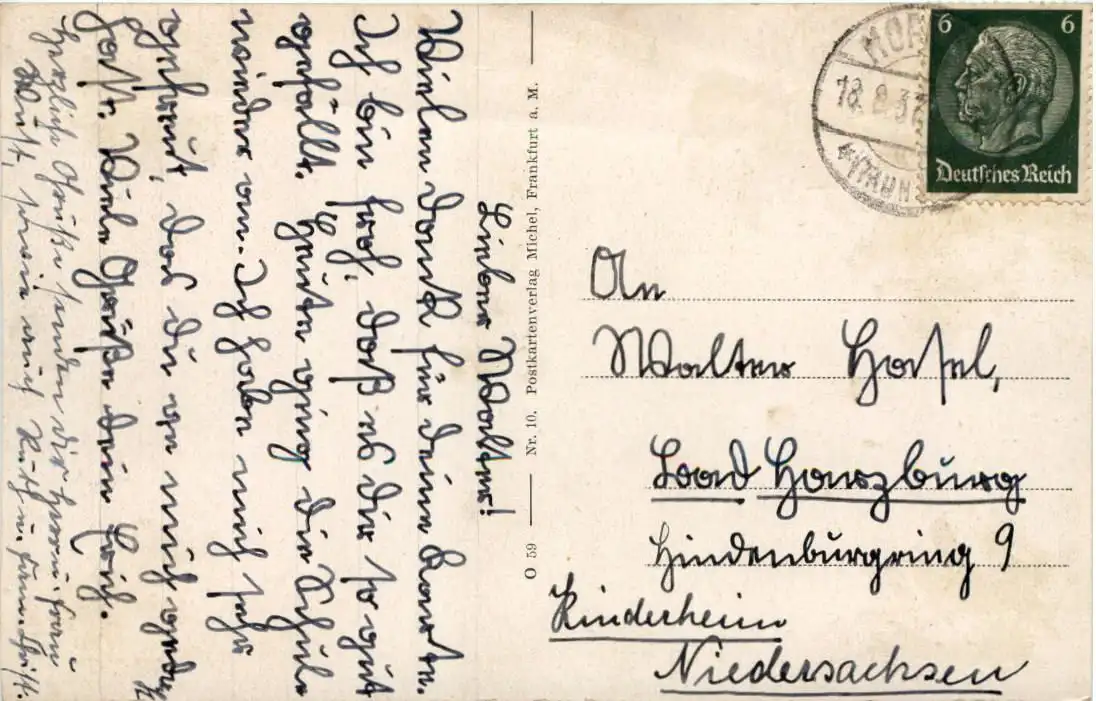 Lieber Walter!
Vielen Dank für deine Karten.
Ich bin froh, daß es dir so gut
gefällt. Heute ging die Schule
wieder an. Ich habe mich sehr
gefreut, das du an mich gedacht
hast. Viele Grüße dein
Herzliche Grüße senden dir Herr u. Frau
O 59 Nr. 10. Postkartenverlag Michel, Frankfurt a. M.
18.8.37
6 6
Deutsches Reich
An
Walter Hasel,
Bad Harzburg
Hindenburgring 9
Kinderheim
Niedersachsen